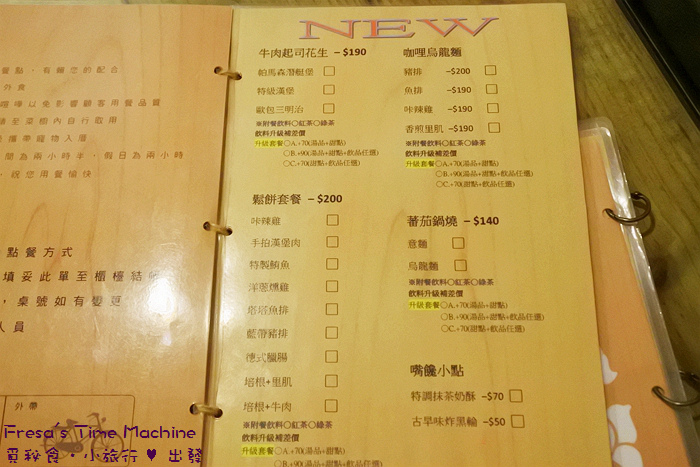 餐點，有關您的配合
外食
喧嘩以免影響顧客用餐品質
請至菜櫃內自行取用
攜帶寵物入層
間為兩小時半，假日為兩小時
，祝您用餐愉快
點餐方式
填妥此單至櫃檯結帳
，桌號如有變更
人員
外帶
NEW
牛肉起司花生 –$190
帕馬森潛艇堡 □
特級漢堡 □
歐包三明治 □
※附餐飲料○紅茶○綠茶
飲料升級補差價
升級套餐 ○A.+70(湯品+甜點)
○B.+90(湯品+甜點+飲品任選)
○C.+70(甜點+飲品任選)
鬆餅套餐 –$200
咔辣雞 □
手拍漢堡肉 □
特製鮪魚 □
洋蔥燻雞 □
塔塔魚排 □
藍帶豬排 □
德式臘腸 □
培根+里肌 □
培根+牛肉 □
※附餐飲料○紅茶○綠茶
飲料升級補差價
升級套餐 ○A.+70(湯品+甜點)
○B.+90(湯品+甜點+飲品任選)
咖哩烏龍麵
豬排 –$200 □
魚排 –$190 □
咔辣雞 –$190 □
香煎里肌 –$190 □
※附餐飲料○紅茶○綠茶
飲料升級補差價
升級套餐 ○A.+70(湯品+甜點)
○B.+90(湯品+甜點+飲品任選)
○C.+70(甜點+飲品任選)
蕃茄鍋燒 –$140
意麵 □
烏龍麵 □
※附餐飲料○紅茶○綠茶
飲料升級補差價
升級套餐 ○A.+70(湯品+甜點)
○B.+90(湯品+甜點+飲品任選)
○C.+70(甜點+飲品任選)
嘴饞小點
特調抹茶奶酥 –$70 □
古早味炸黑輪 –$50 □
Fresa's Time Machine
覓秘食・小旅行 ♥ 出發